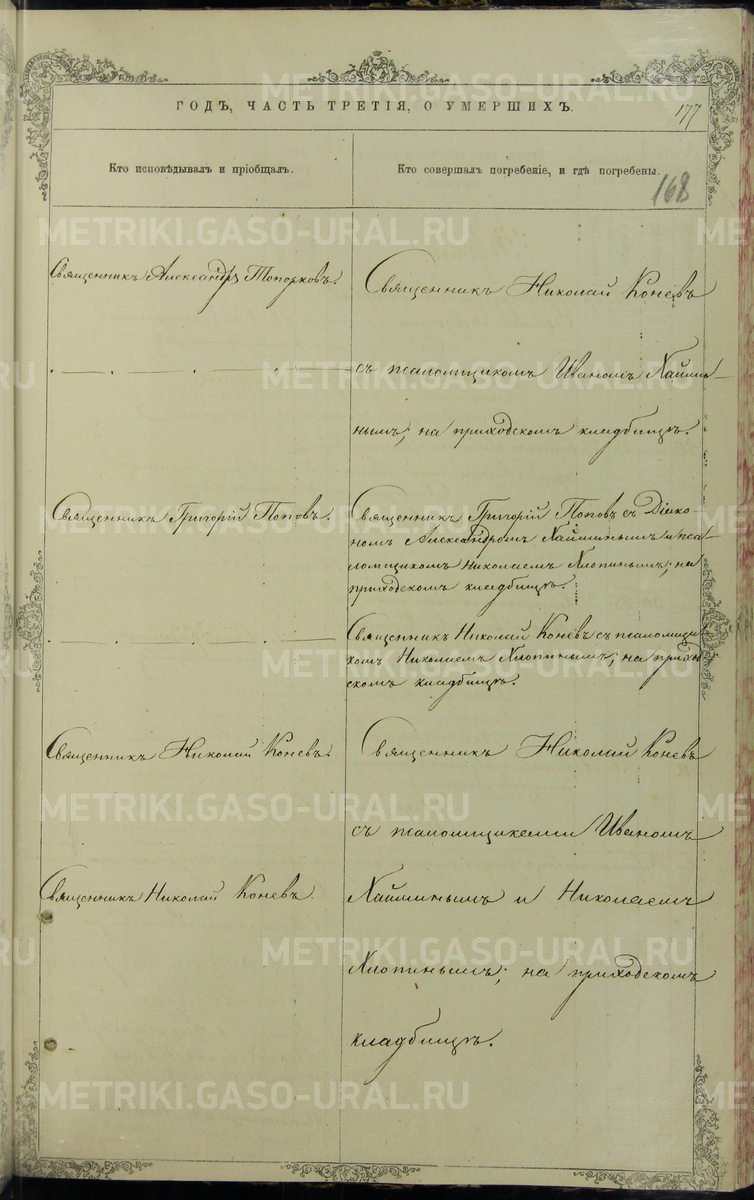 ГОДЪ, ЧАСТЬ ТРЕТІЯ, О УМЕРШИХЪ.
177
Кто исповѣдывалъ и пріобщалъ.
Кто совершалъ погребеніе, и гдѣ погребены.
168
Священникъ Александръ Топорковъ.
Священникъ Николай Коневъ
съ псаломщикомъ Иваномъ Хайми-
нымъ; на приходскомъ кладбищѣ.
Священникъ Григорій Поповъ.
Священникъ Григорій Поповъ съ Діако-
номъ Александромъ Хайминымъ и пса-
ломщикомъ Николаемъ Хлопинымъ; на
приходскомъ кладбищѣ.
Священникъ Николай Коневъ съ псаломщи-
комъ Николаемъ Хлопинымъ; на приход-
скомъ кладбищѣ.
Священникъ Николай Коневъ.
Священникъ Николай Коневъ
съ псаломщиками Иваномъ
Священникъ Николай Коневъ.
Хайминымъ и Николаемъ
Хлопинымъ; на приходскомъ
кладбищѣ.
METRIKI.GASO-URAL.RU